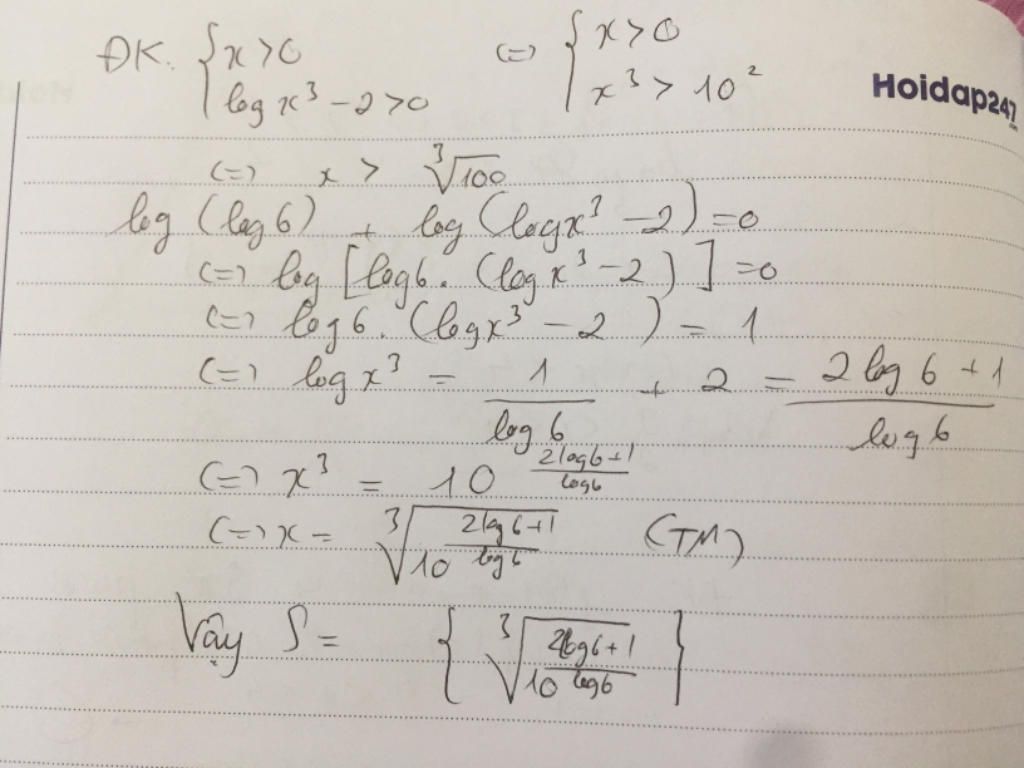 ĐK. { x>0 (=) { x>0
log x³ - 2>0 x³ > 10²
Hoidap247.com
(=) x > ³√100
log (log6) + log (logx³ - 2) = 0
(=) log [log6. (logx³ - 2)] = 0
(=) log6. (logx³ - 2) = 1
(=) logx³ = 1/log6 + 2 = (2log6+1)/log6
(=) x³ = 10^((2log6+1)/log6)
(=) x = ³√(10^((2log6+1)/log6)) (TM)
Vậy S = { ³√(10^((2log6+1)/log6)) }